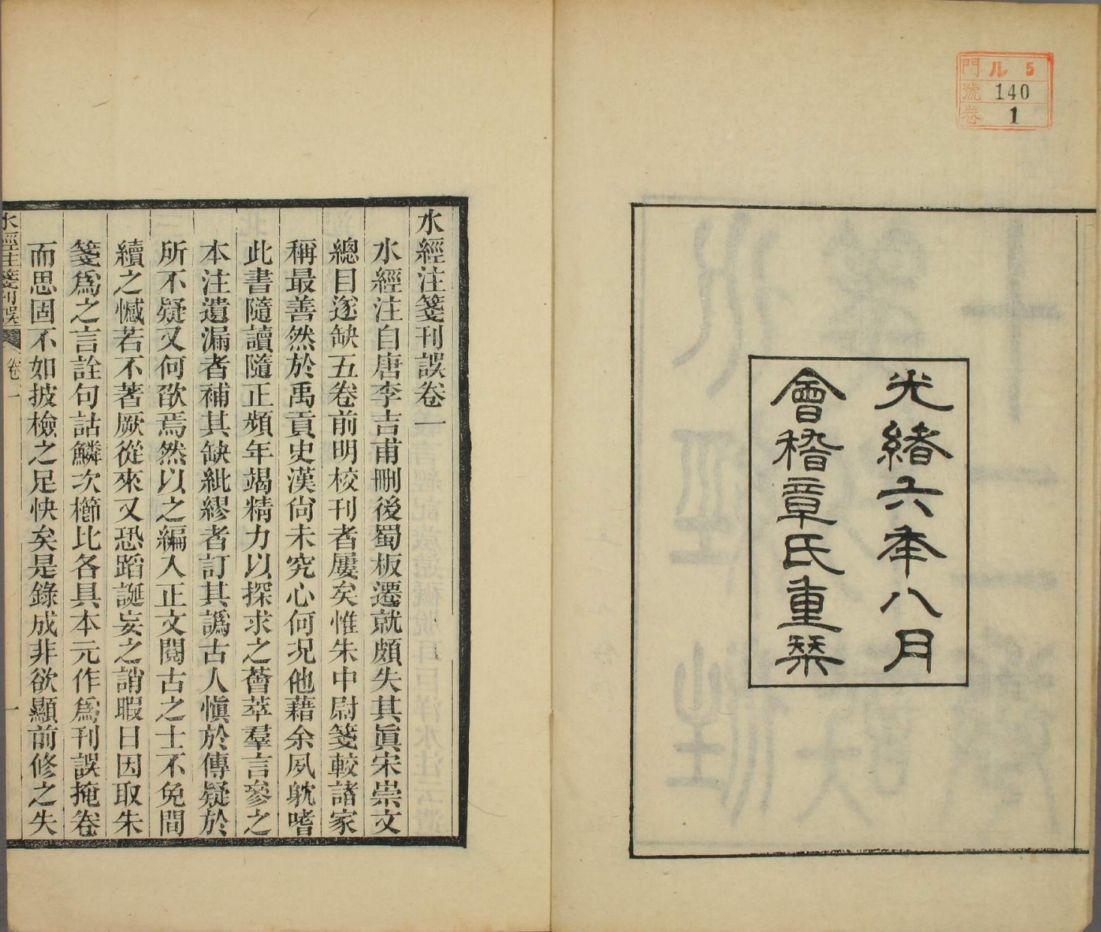 門 ル 5
號 140
卷 1
光緒六年八月
會稽章氏重栞
水經注箋刊誤卷一
水經注自唐李吉甫刪後蜀板遷就頗失其眞宋崇文
總目遂缺五卷前明校刊者屢矣惟朱中尉箋較諸家
稱最善然於禹貢史漢尙未究心何况他藉余夙躭嗜
此書隨讀隨正頻年竭精力以探求之薈萃羣言參之
本注遺漏者補其缺紕繆者訂其譌古人愼於傳疑於
所不疑又何欿焉然以之編入正文閱古之士不免間
續之憾若不著厥從來又恐蹈誕妄之誚暇日因取朱
箋爲之言詮句詁鱗次櫛比各具本元作爲刊誤掩卷
而思固不如披檢之足快矣是錄成非欲顯前修之失
水經注箋刊誤 卷一 一